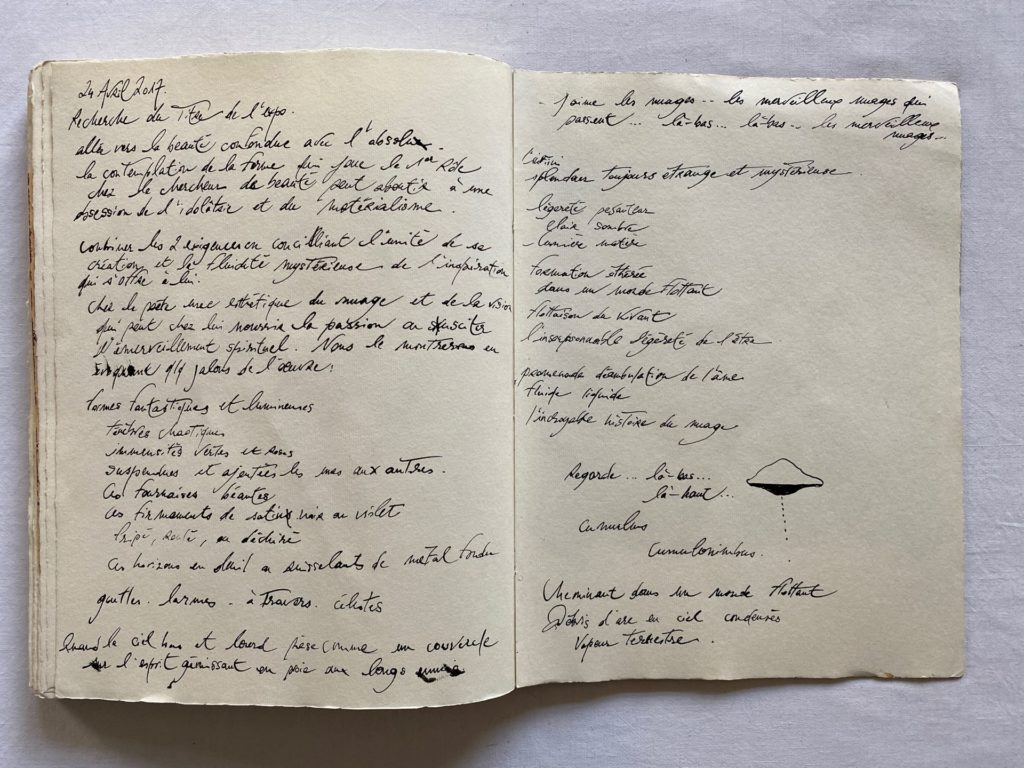 24 Avril 2017.
Recherche du Titre de l'expo.
aller vers la beauté confondue avec l'absolu.
la contemplation de la forme qui joue le 1er Rôle
chez le chercheur de beauté peut aboutir à une
obsession de l'idolâtrie et du matérialisme.
combiner les 2 exigences en conciliant l'unité de sa
création et la fluidité mystérieuse de l'inspiration
qui s'offre à lui.
chez le poète une esthétique du nuage et de la vision
qui peut chez lui nourrir la passion ou susciter
l'émerveillement spirituel. Nous le montrerons en
qlq jalons de l'oeuvre:
formes fantastiques et lumineuses
ténèbres chaotiques
immensités vertes et roses
suspendues et ajoutées les unes aux autres.
ces fournaises béantes
ces firmaments de satin noir ou violet
fripé, roulé, ou déchiré
ces horizons en deuil ou ruisselants de métal fondu
gouttes. larmes. à travers. célestes
Quand le ciel bas et lourd pèse comme un couvercle
sur l'esprit gémissant en proie aux longs ennuis
- j'aime les nuages.. les merveilleux nuages qui
passent... là-bas... là-bas.. les merveilleux
nuages..
splendeur toujours étrange et mystérieuse.
légèreté pesanteur
clair sombre
- lumière matière
formation éthérée
dans un monde flottant
flottaison du vivant
l'insoupçonnable légèreté de l'être
promenade déambulation de l'âme
fluide liquide
l'incroyable histoire du nuage
Regarde... là-bas...
là-haut...
cumulus
Cumulonimbus.
Cheminant dans un monde flottant
Débris d'arc en ciel condensés
Vapeur terrestre.